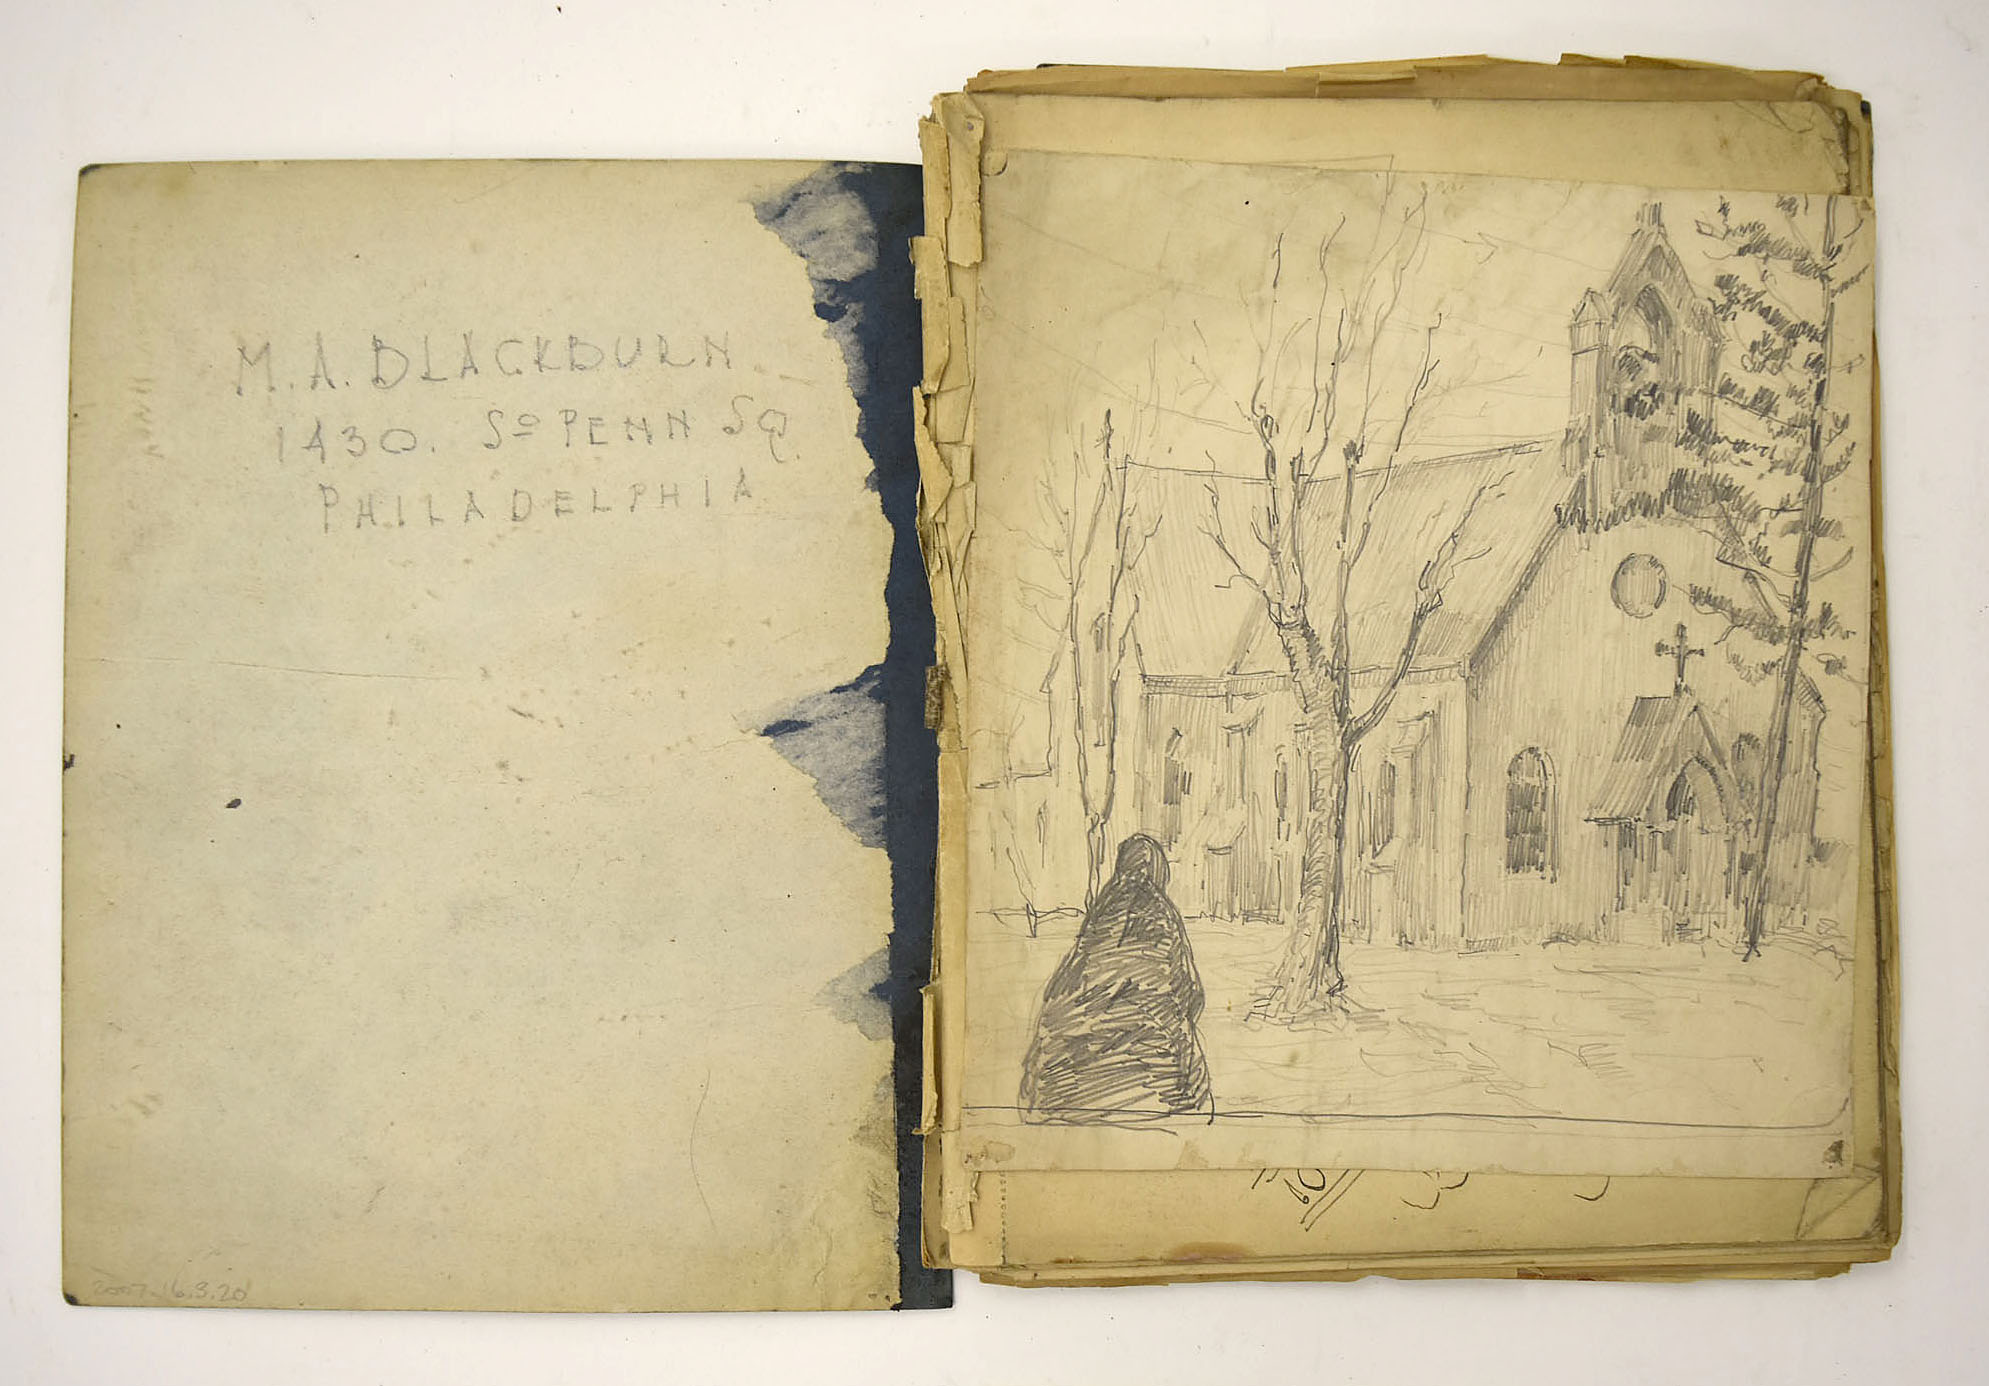 M. A. BLACKBURN
1430. So PENN SQ.
PHILADELPHIA
2007.16.3.20